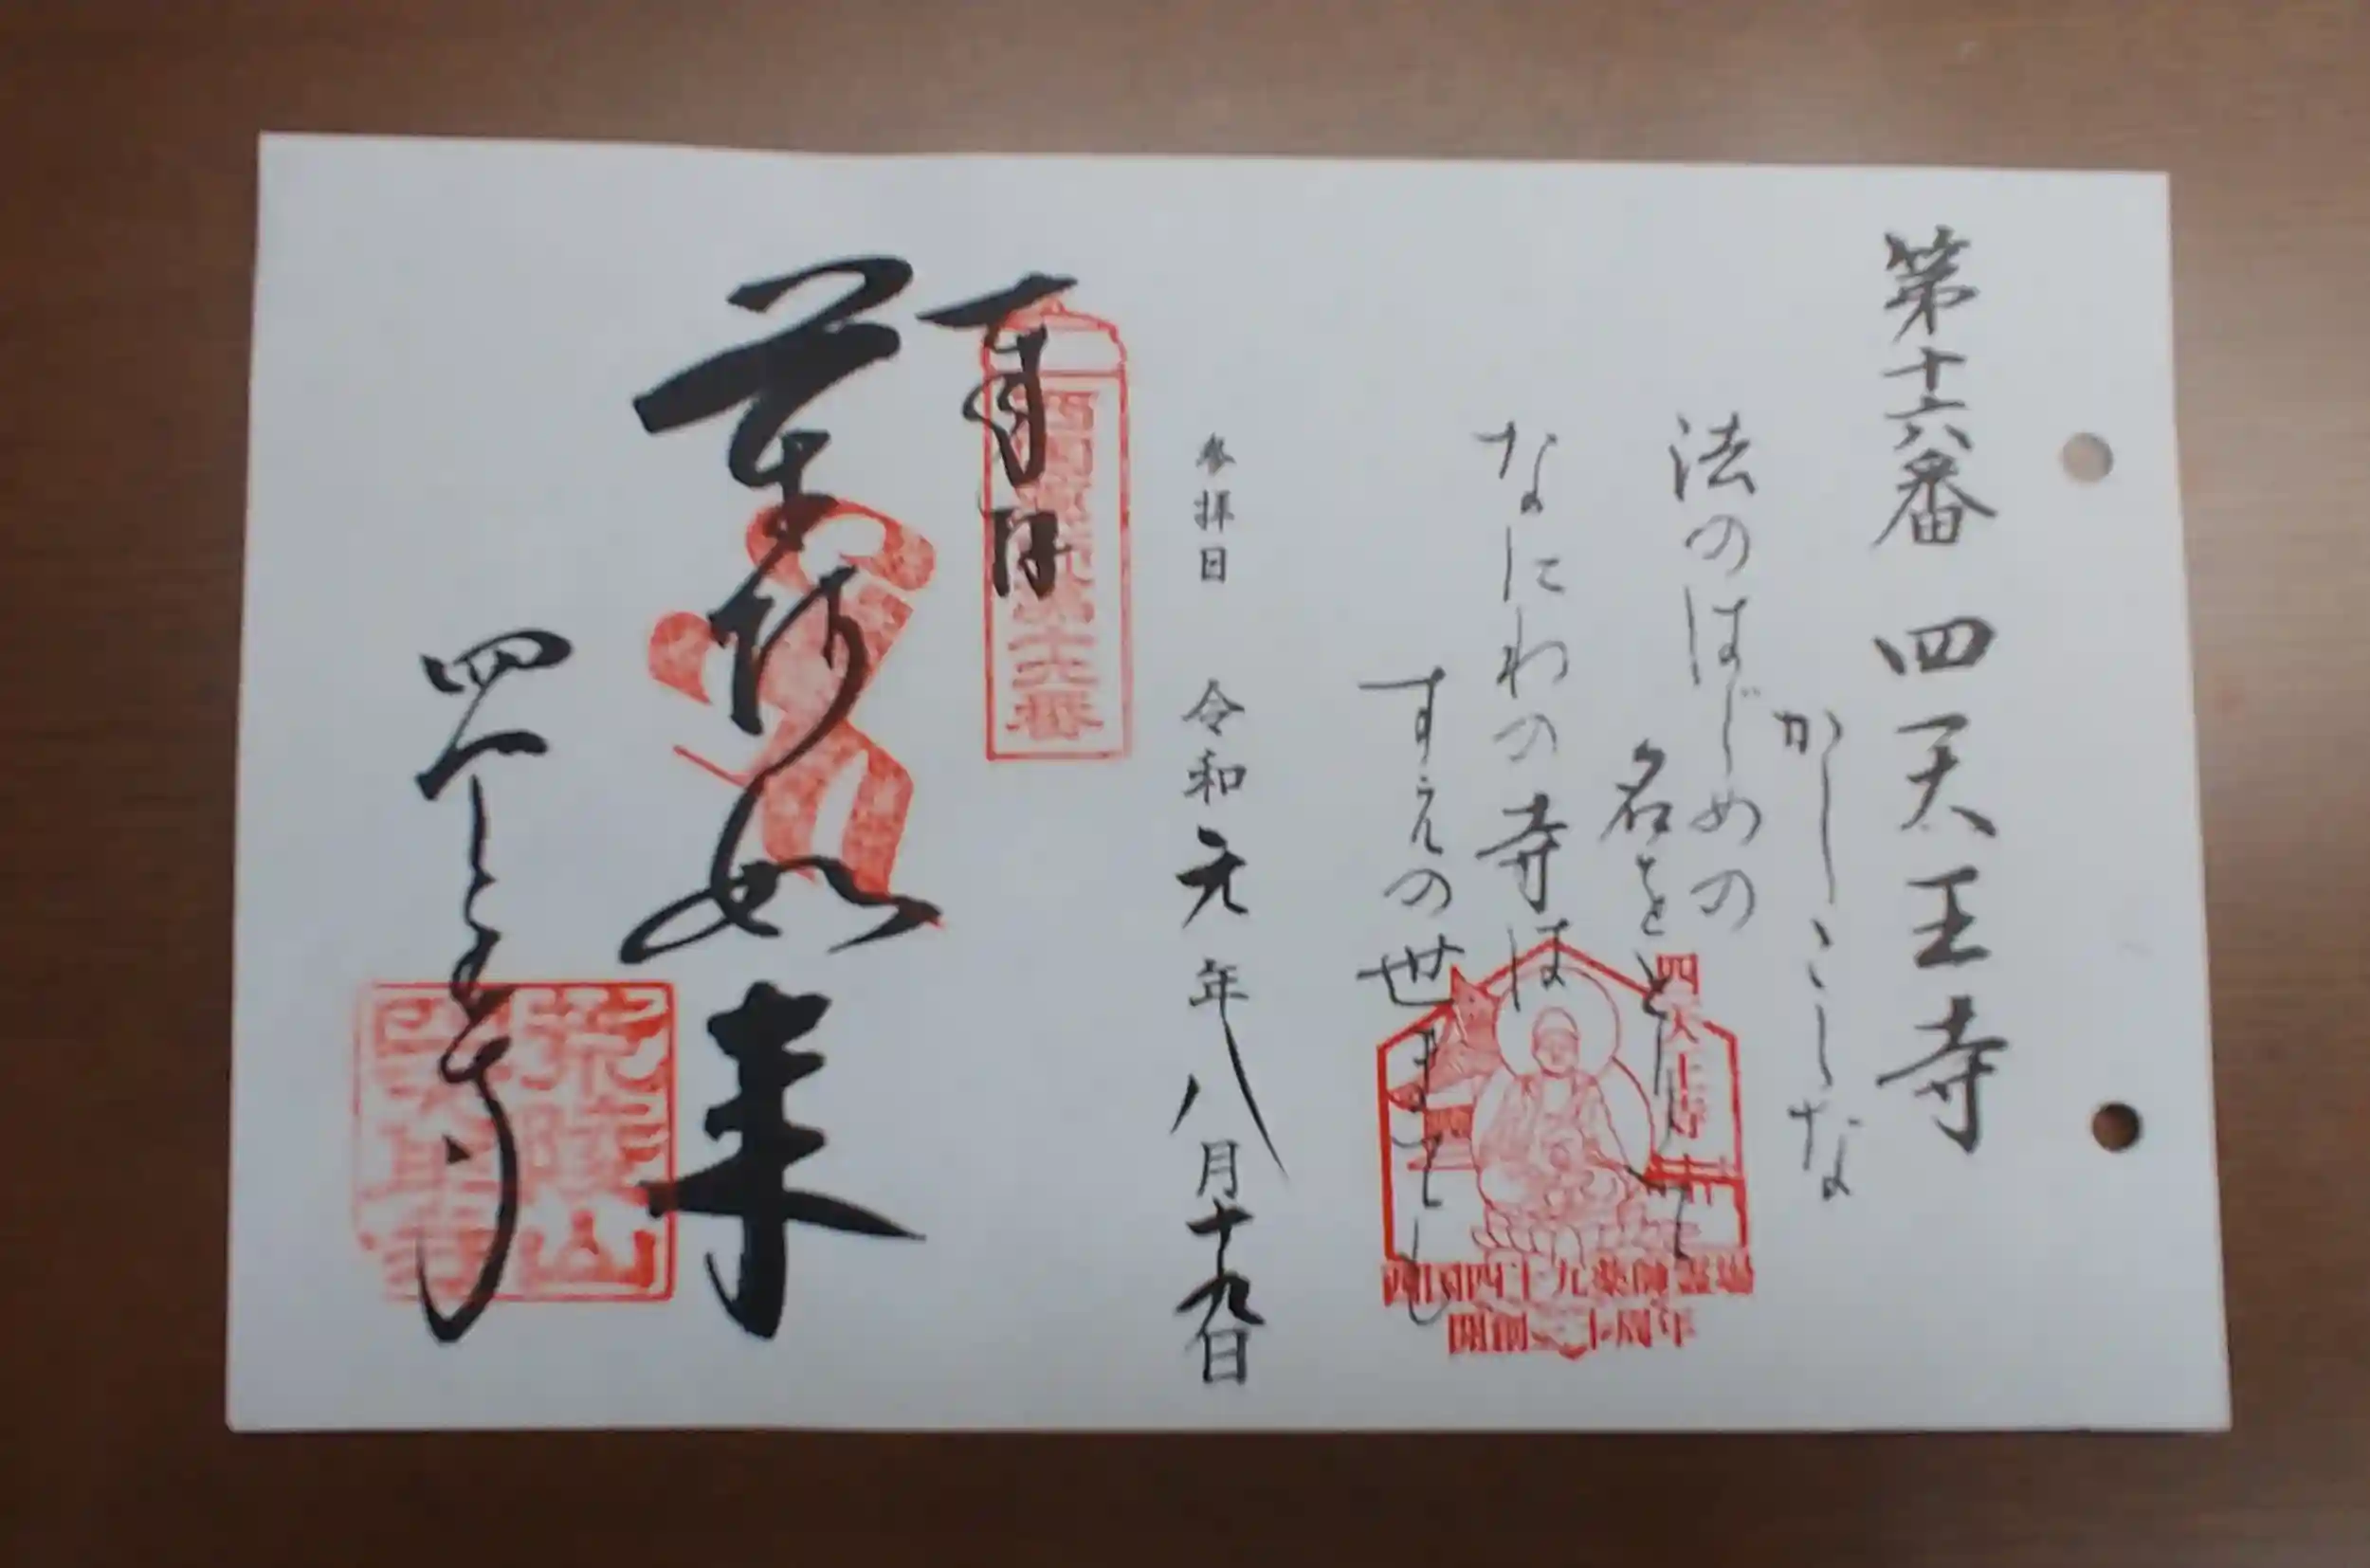 第十六番 四天王寺
かしこしな
法のはじめの
名をとしして
なにわの寺は
すえの世までも
参拝日 令和元年八月十九日
奉拝
西国薬師第十六番
薬師如来
四天王寺
荒陵山
四天王寺
西国四十九薬師霊場
開創三十周年